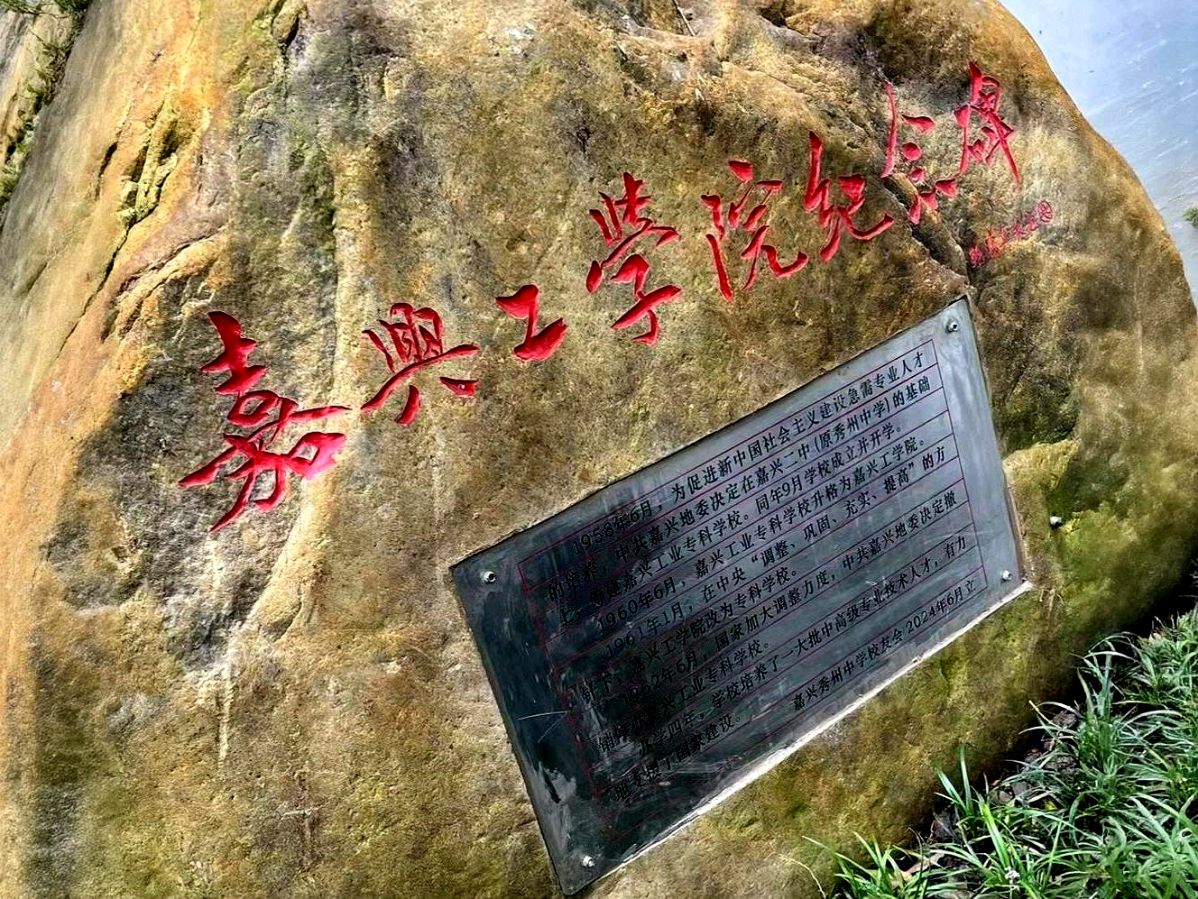 嘉興工學院紀念碑
1958年6月，为促进新中国社会主义建设急需专业人才
的培养，中共嘉兴地委决定在嘉兴二中(原秀州中学)的基础
上，筹建嘉兴工业专科学校。同年9月学校成立并开学。
1960年6月，嘉兴工业专科学校升格为嘉兴工学院。
1961年1月，在中央“调整、巩固、充实、提高”的方
针下，嘉兴工学院改为专科学校。
1962年6月，国家加大调整力度，中共嘉兴地委决定撤
销嘉兴工业专科学校。
办学四年，学校培养了一大批中高级专业技术人才，有力
地支持了国家建设。 嘉兴秀州中学校友会 2024年6月立